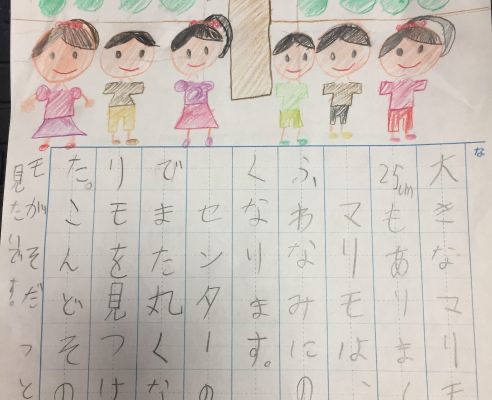 な
大きなマリモ
25cmもありま
マリモは、
ふ、わなみにの
くなります。
センターの
でまた丸くな
リモを見つけ
た。こんどその
モがそだっと
見たいです。